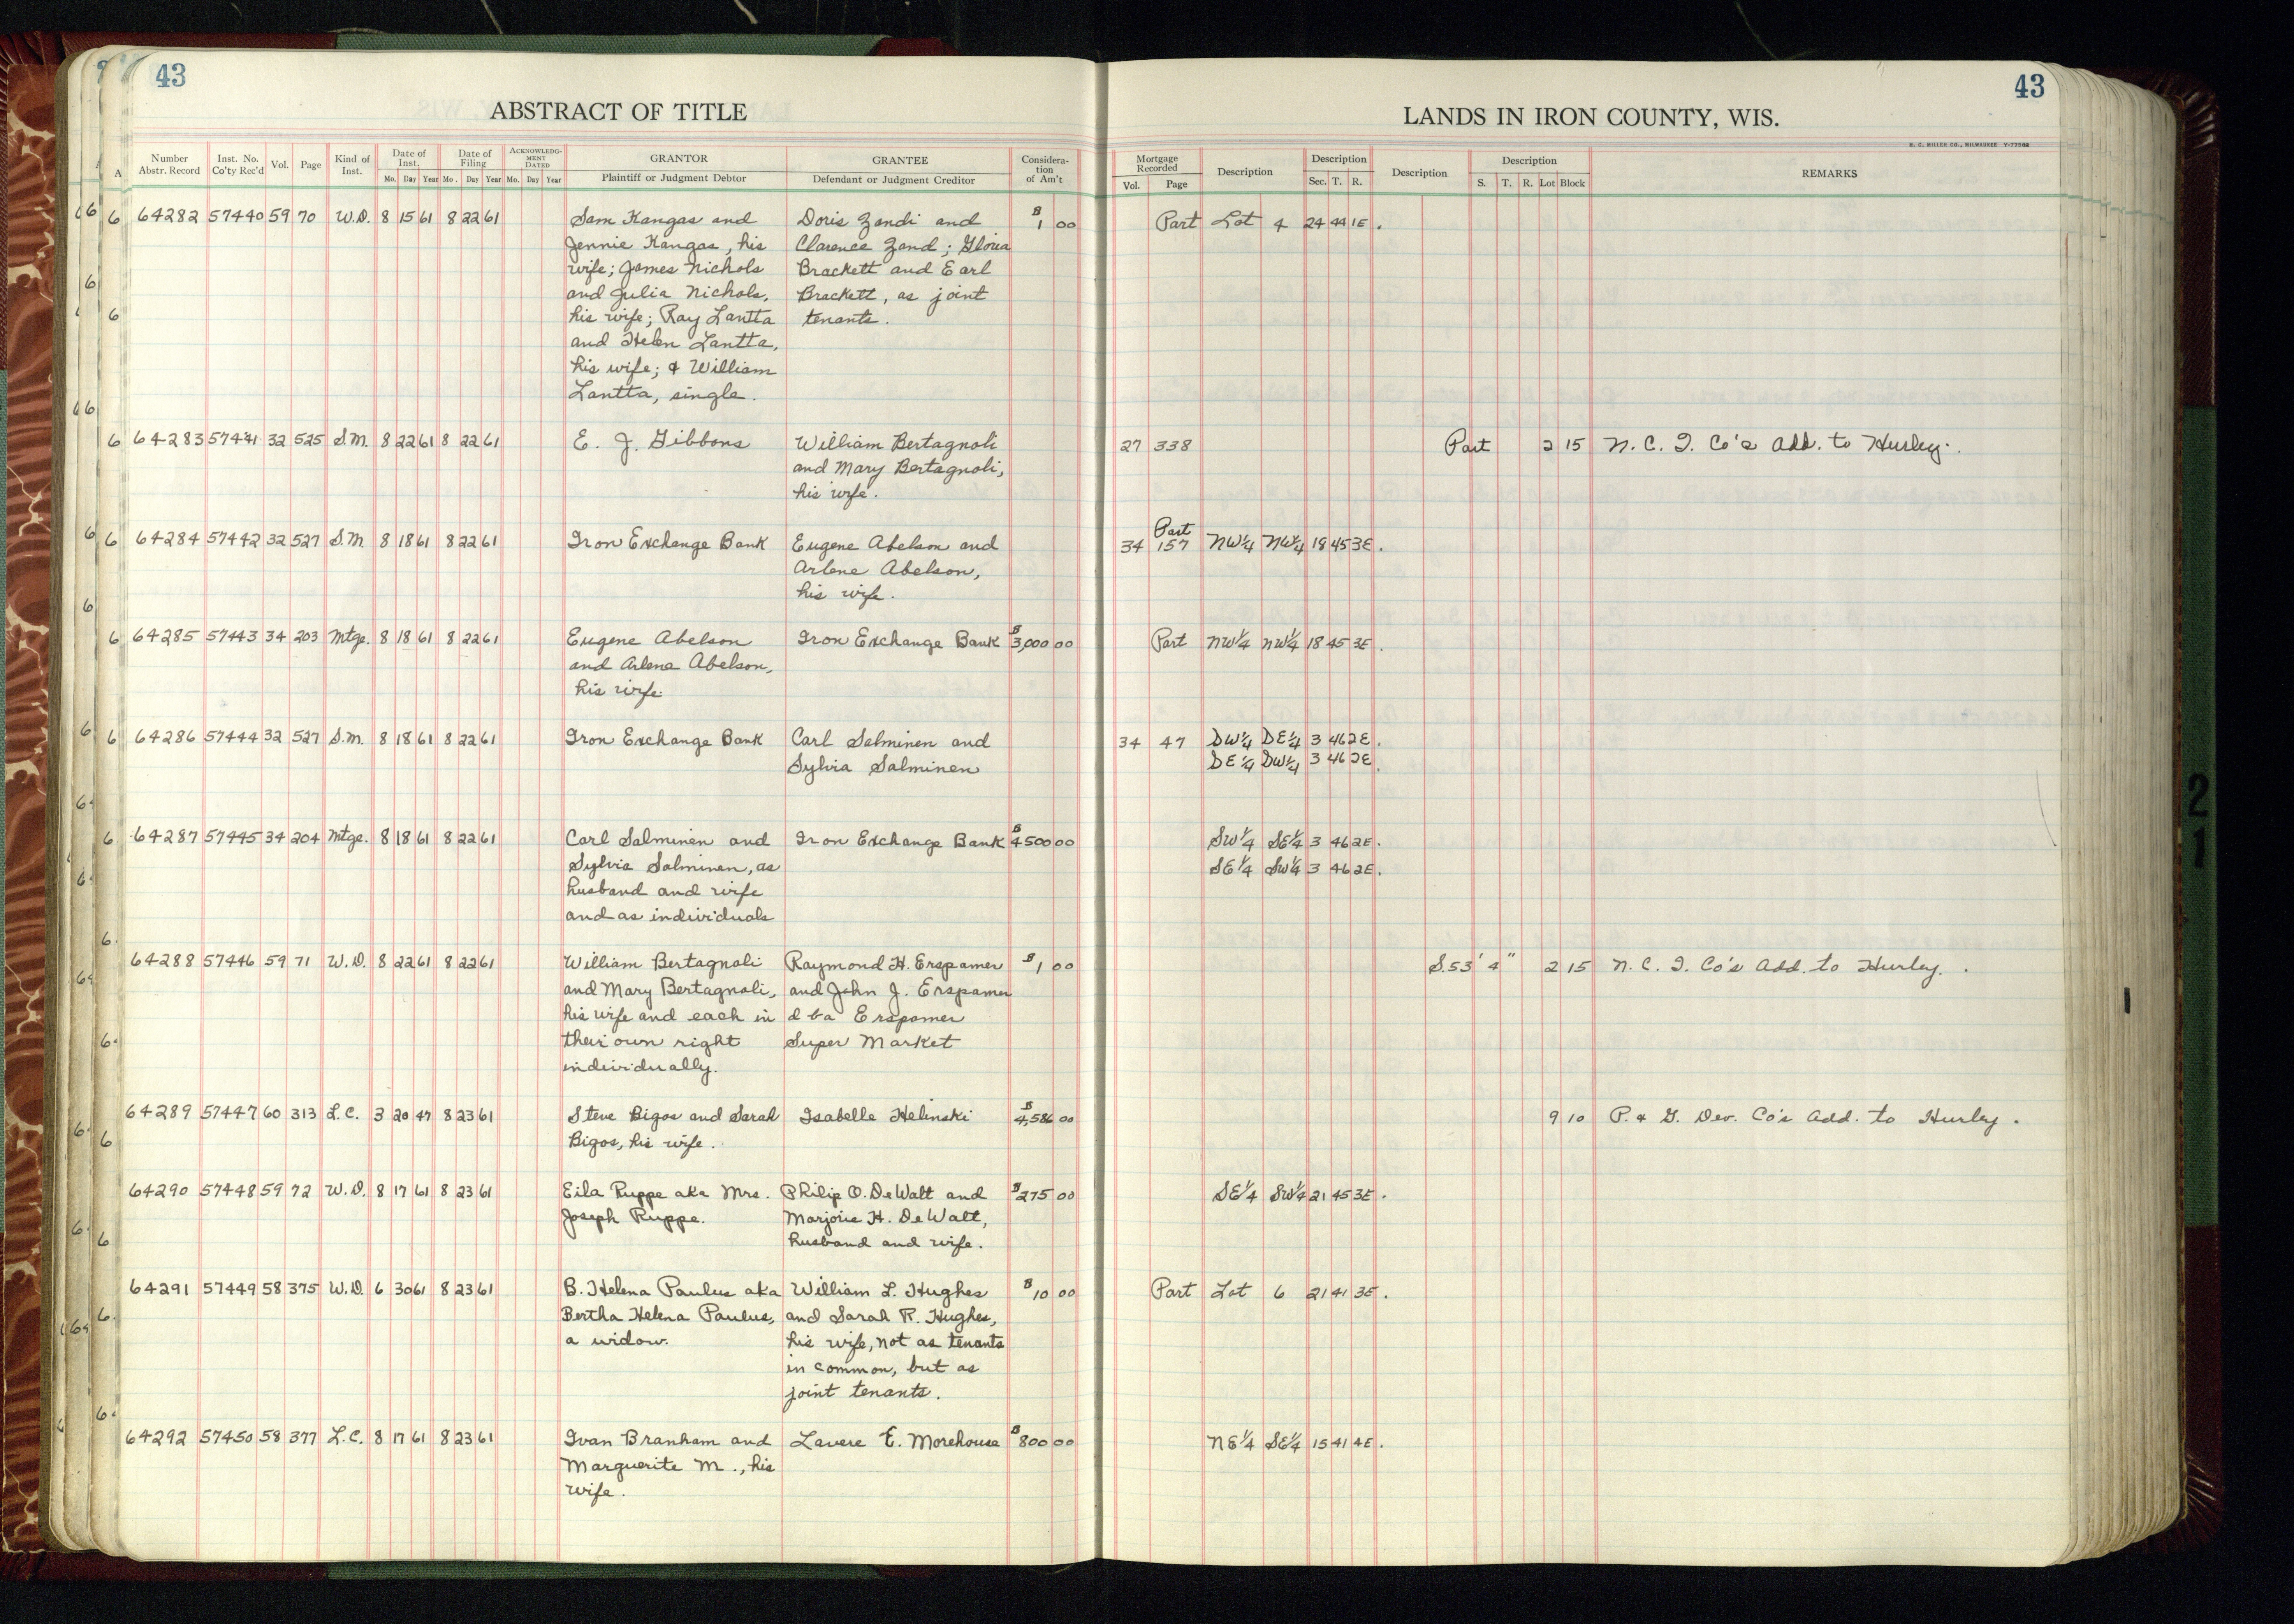 43
43
ABSTRACT OF TITLE
LANDS IN IRON COUNTY, WIS.
H. C. MILLER CO., MILWAUKEE
Number Abstr. Record Inst. No. Co'ty Rec'd Vol. Page Kind of Inst. Date of Inst. Mo. Day Year Date of Filing Mo. Day Year ACKNOWLEDGMENT DATED Mo. Day Year GRANTOR Plaintiff or Judgment Debtor GRANTEE Defendant or Judgment Creditor Considera-tion of Am't Mortgage Recorded Vol. Page Description Description Sec. T. R. Description Description S. T. R. Lot Block REMARKS
64282 57440 59 70 W.D. 8 15 61 8 22 61 Sam Kangas and Doris Zandi and $1 00 Part Lot 4 24 44 1E.
Jennie Kangas, his Clarence Zand; Gloria
wife; James Nichols Brackett and Earl
and Julia Nichols, Brackett, as joint
his wife; Ray Lantta tenants.
and Helen Lantta,
his wife; & William
Lantta, single.
64283 57441 32 525 S.M. 8 22 61 8 22 61 E. J. Gibbons William Bertagnoli 27 338 Part 2 15 N. C. I. Co's Add. to Hurley.
and Mary Bertagnoli,
his wife.
Part
64284 57442 32 527 S.M. 8 18 61 8 22 61 Iron Exchange Bank Eugene Abelson and 34 157 NW¼ NW¼ 18 45 3E.
Arlene Abelson,
his wife.
64285 57443 34 203 Mtge. 8 18 61 8 22 61 Eugene Abelson Iron Exchange Bank $3,000 00 Part NW¼ NW¼ 18 45 3E.
and Arlene Abelson,
his wife.
64286 57444 32 527 S.M. 8 18 61 8 22 61 Iron Exchange Bank Carl Salminen and 34 47 SW¼ SE¼ 3 46 2E.
Sylvia Salminen SE¼ SW¼ 3 46 2E.
64287 57445 34 204 Mtge. 8 18 61 8 22 61 Carl Salminen and Iron Exchange Bank $4500 00 SW¼ SE¼ 3 46 2E.
Sylvia Salminen, as SE¼ SW¼ 3 46 2E.
husband and wife
and as individuals
64288 57446 59 71 W.D. 8 22 61 8 22 61 William Bertagnoli Raymond H. Erspamer $1 00 S. 53' 4" 2 15 N. C. I. Co's Add. to Hurley.
and Mary Bertagnoli, and John J. Erspamer
his wife and each in dba Erspamer
their own right Super Market
individually.
64289 57447 60 313 L.C. 3 20 47 8 23 61 Steve Bigos and Sarah Isabelle Helinski $4,586 00 9 10 P. & G. Dev. Co's Add. to Hurley.
Bigos, his wife.
64290 57448 59 72 W.D. 8 17 61 8 23 61 Eila Ruppe aka Mrs. Philip O. DeWalt and $275 00 SE¼ SW¼ 21 45 3E.
Joseph Ruppe. Marjorie H. DeWalt,
husband and wife.
64291 57449 58 375 W.D. 6 30 61 8 23 61 B. Helena Paulus aka William L. Hughes $10 00 Part Lot 6 21 41 3E.
Bertha Helena Paulus, and Sarah R. Hughes,
a widow. his wife, not as tenants
in common, but as
joint tenants.
64292 57450 58 377 L.C. 8 17 61 8 23 61 Ivan Branham and Lavere E. Morehouse $800 00 NE¼ SE¼ 15 41 4E.
Marguerite M., his
wife.